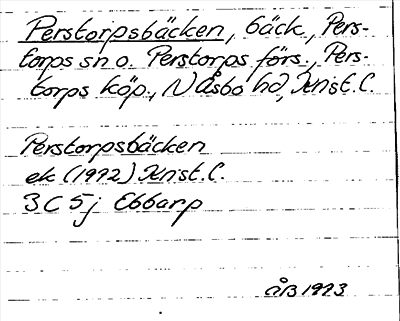 Perstorpsbäcken, bäck, Pers-
torps sn o. Perstorps förs., Pers-
torps köp., N Åsbo hd, Knst. L.
Perstorpsbäcken
ek (1972) Knst. L.
3 C 5 j Ebbarp
ÅB 1973